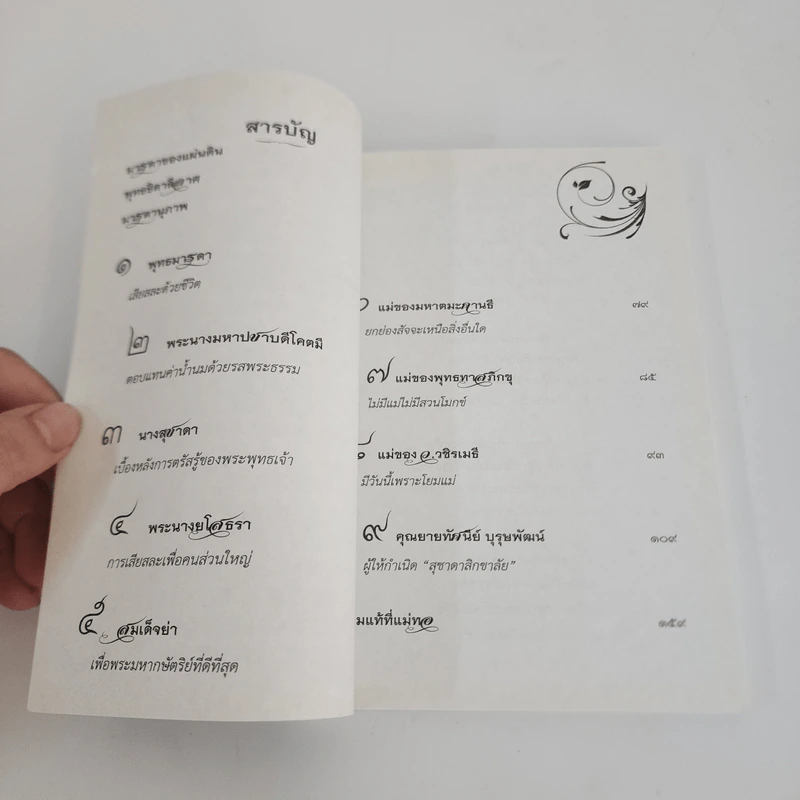 สารบัญ
มารดาของแผ่นดิน
พุทธธิดาลิขาต
มารดานุภาพ
๑ พุทธมารดา
เสียสละด้วยชีวิต
๒ พระนางมหาปชาบดีโคตมี
ตอบแทนค่าน้ำนมด้วยรสพระธรรม
๓ นางสุชาดา
เบื้องหลังการตรัสรู้ของพระพุทธเจ้า
๔ พระนางยโสธรา
การเสียสละเพื่อคนส่วนใหญ่
๕ สมเด็จย่า
เพื่อพระมหากษัตริย์ที่ดีที่สุด
แม่ของมหาตมะคานธี ๗๙
ยกย่องสัจจะเหนือสิ่งอื่นใด
๗ แม่ของพุทธทาสภิกขุ ๘๕
ไม่มีแม่ไม่มีสวนโมกข์
แม่ของ ว.วชิรเมธี ๙๓
มีวันนี้เพราะโยมแม่
๙ คุณยายทัศนีย์ บุรุษพัฒน์ ๑๐๙
ผู้ให้กำเนิด “สุชาดาสิกขาลัย”
มแท้ที่แม่ทอ ๑๕๙